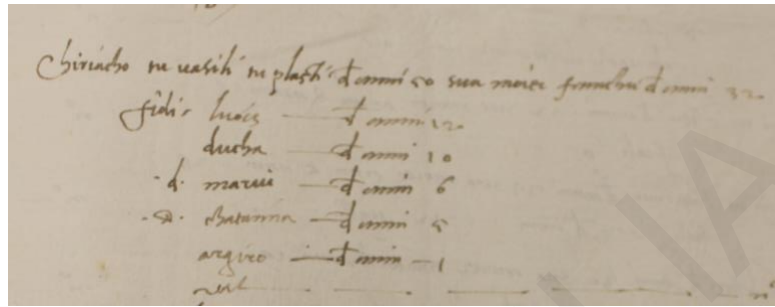 Chiriacho tu vasili tu plasti d anni 50 sua moier franchu d anni 32
fidi - lucas d anni 12
ducha d anni 10
.d. marui d anni 6
.d. Catarina d anni 5
argiro d anni 1
LIA